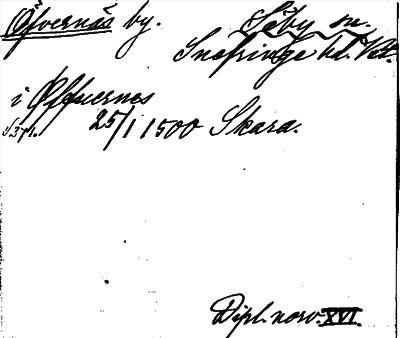 Öfvernäs by. Säby sn.
Snefringe hd. Vstm.
i Øffuernes
s. 371. 25/1 1500 Skara.
Dipl. norv. XVI.